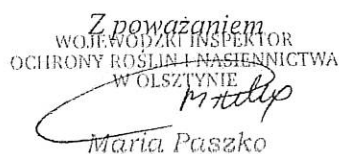 Z poważaniem
WOJEWÓDZKI INSPEKTOR
OCHRONY ROŚLIN I NASIENNICTWA
W OLSZTYNIE
Maria Paszko